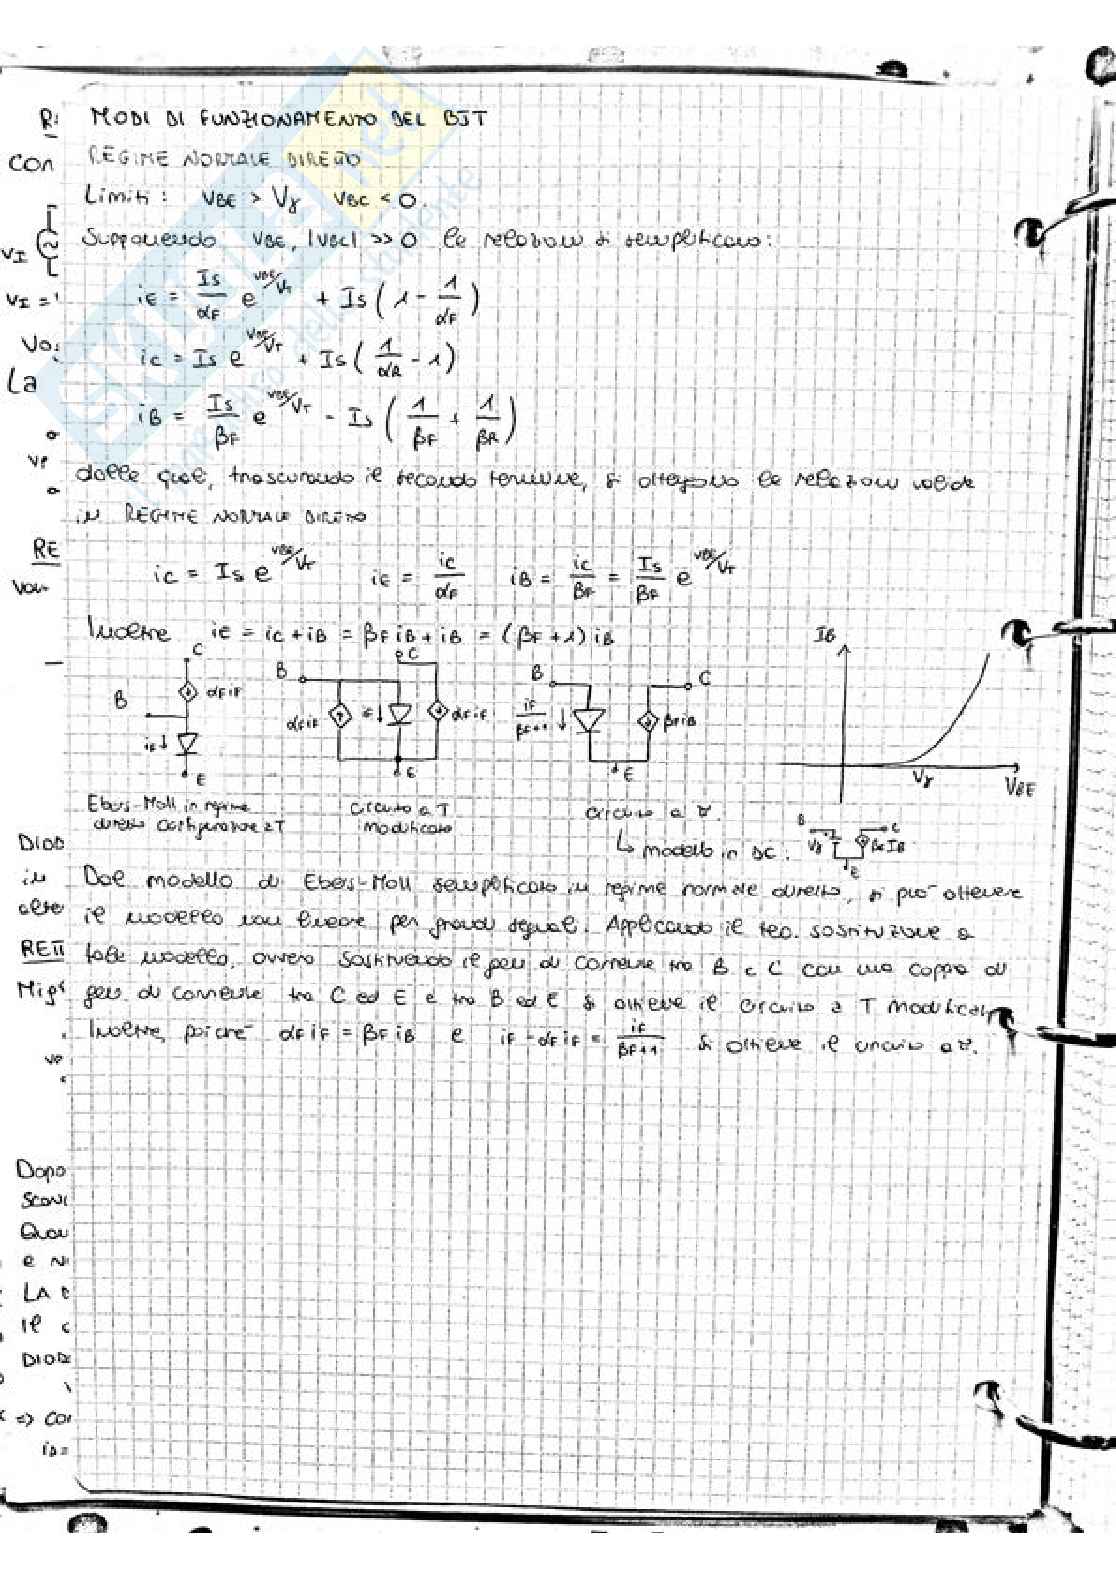 MODI DI FUNZIONAMENTO DEL BJT
REGIME NORMALE DIRETTO
Limiti: VBE > Vγ VBC < 0.
Supponendo VBE, |VBC| >> 0 le relazioni si semplificano:
iE = Is/αF e^VBE/VT + Is (1 - 1/αF)
iC = Is e^VBE/VT + Is (1/αR - 1)
iB = Is/βF e^VBE/VT - Is (1/βF + 1/βR)
dalle quali, trascurando il secondo termine, si ottengono le relazioni valide
in REGIME NORMALE DIRETTO
iC = Is e^VBE/VT iE = iC/αF iB = iC/βF = Is/βF e^VBE/VT
Inoltre iE = iC + iB = βF iB + iB = (βF + 1) iB
C αF iF B iF E
B C αF iF iF αF iF E
B C iF/βF+1 βF iB E
IB Vγ VBE
Ebers-Moll in regime
diretto configurazione a T
circuito a T
modificato
circuito a π.
↳ modello in DC: B Vγ C βF IB E
Dal modello di Ebers-Moll semplificato in regime normale diretto, si può ottenere
il modello non lineare per grandi segnali. Applicando il teo. sostituzione a
tale modello, ovvero sostituendo il gen di corrente tra B e C con una coppia di
gen di corrente tra C ed E e tra B ed E si ottiene il circuito a T modificato
Inoltre, poiché αF iF = βF iB e iF - αF iF = iF/βF+1 si ottiene il circuito a π.
CON
VI
VI =
La
RE
DIOD
in
oltre
RETI
Dopo
SCONI
Quan
e N
LA
il c
DIOD
=> CO
iD=